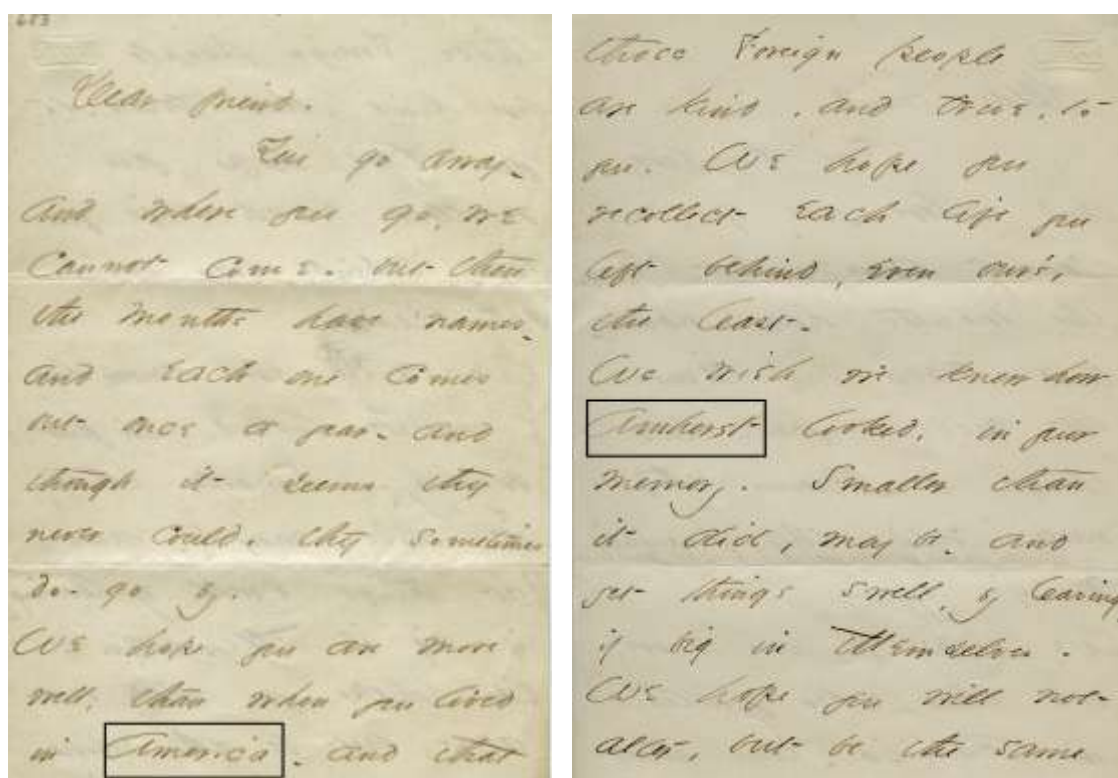 653
Dear friend.
You go away.
And where you go, we
cannot come. but then
the months have names.
And each one comes
but once a year. And
though it seems they
never could, they sometimes
do - go by.
We hope you are more
well, than when you lived
in America. And that
those Foreign people
are kind, and true, to
you. We hope you
recollect each life you
left behind, even our's,
the least.
We wish we knew how
Amherst looked, in your
memory. Smaller than
it did, maybe, and
yet things swell, by leaving
if big in themselves.
We hope you will not
alter, but be the same